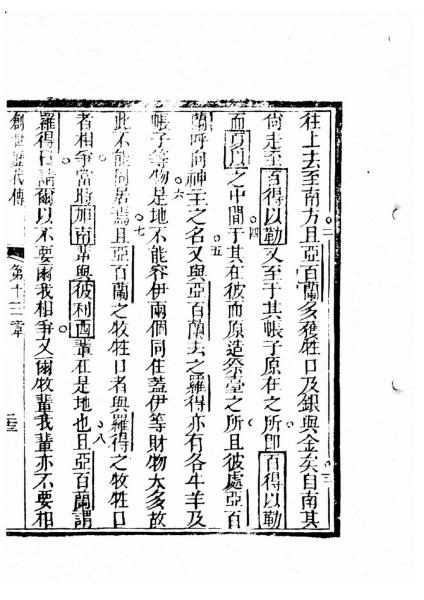 往上去至南方且亞百蘭多獲牲口及銀與金矣自南其
尚走至百得以勒又至于其帳子原在之所卽百得以勒
而亥以之中間于其在彼而原造祭臺之所且彼處亞百
蘭呼向神主之名又與亞百蘭去之羅得亦有各牛羊及
帳子等物是地不能容伊兩個同住蓋伊等財物大多故
此不能同居焉且亞百蘭之牧牲口者與羅得之牧牲口
者相爭當時加南輩與彼利西輩在是地也且亞百蘭謂
羅得曰請爾以不要爾我相爭又爾牧輩我輩亦不要相
創世歷代傳 第十三章
二
三
四
五
六
七
八